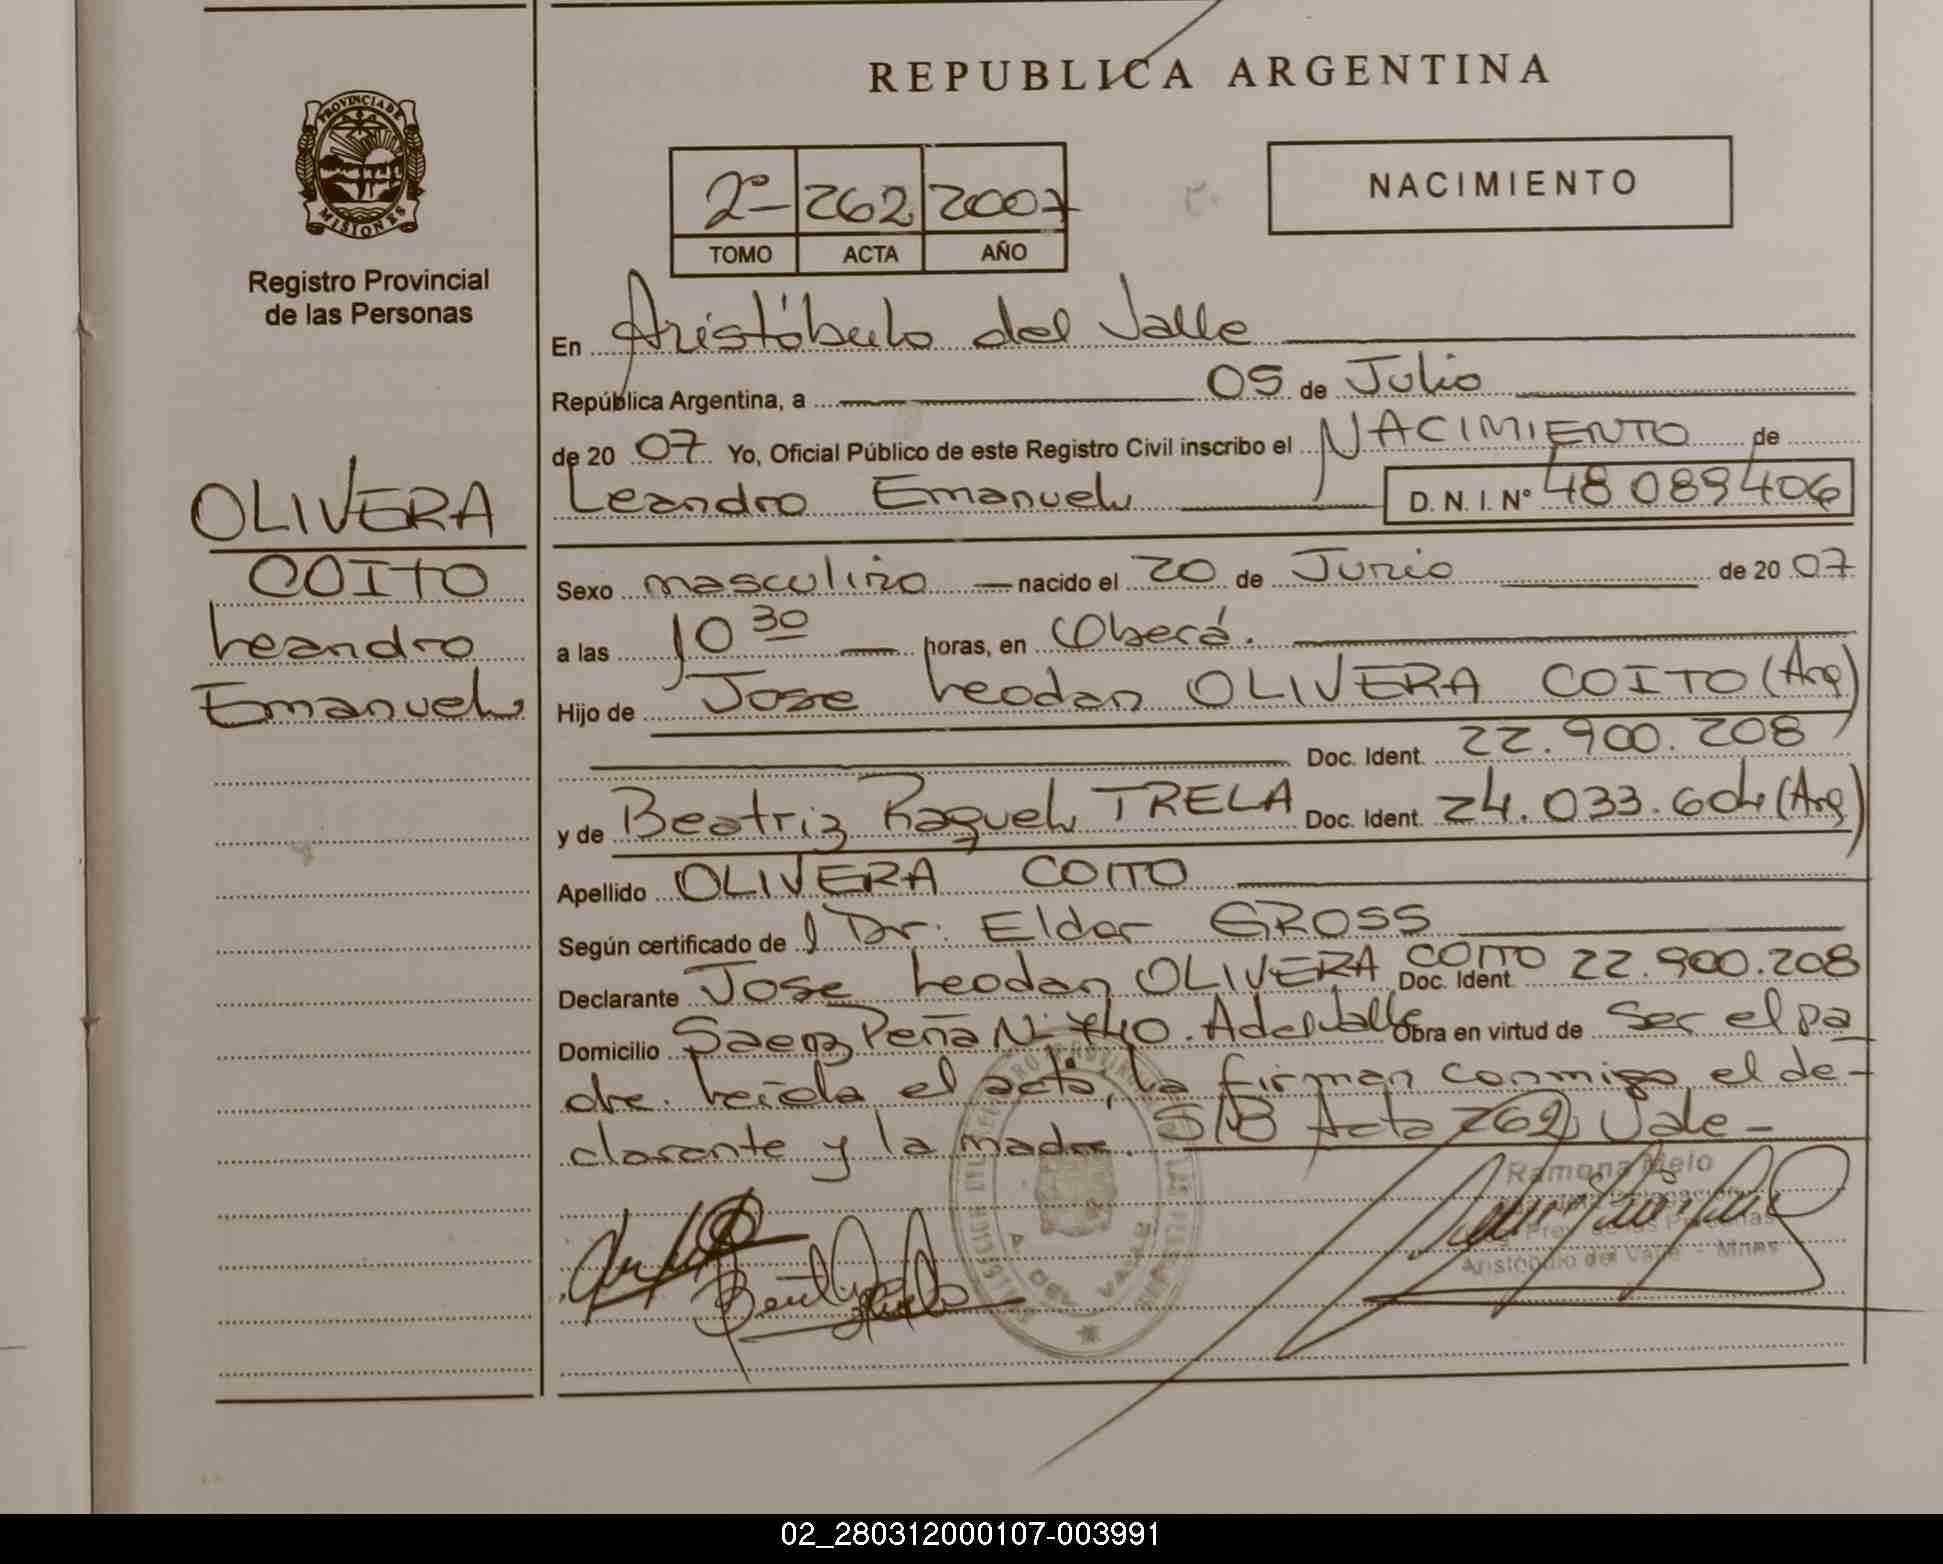 REPUBLICA ARGENTINA
PROVINCIA DE
MISIONES
Registro Provincial
de las Personas
NACIMIENTO
2º 262 2007
TOMO ACTA AÑO
En Aristóbulo del Valle
República Argentina, a 05 de Julio
de 20 07 Yo, Oficial Público de este Registro Civil inscribo el NACIMIENTO de
Leandro Emanuel D. N. I. Nº 48 089 406
OLIVERA
COITO
Leandro
Emanuel
Sexo masculino nacido el 20 de Junio de 20 07
a las 10 30 horas, en Oberá.
Hijo de Jose Leodan OLIVERA COITO (Arg)
Doc. Ident. 22.900.208
y de Beatriz Raquel TRELA Doc. Ident. 24.033.604 (Arg)
Apellido OLIVERA COITO
Según certificado de Dr. Eldor GROSS
Declarante Jose Leodan OLIVERA COITO Doc. Ident. 22.900.208
Domicilio Saenz Peña Nº 740. A del Valle Obra en virtud de Ser el pa
dre. Leída el acta, la firman conmigo el de-
clarante y la madre. S/B Acta 262, Vale -
Ramona Melo
Aristóbulo del Valle - Mnes
DEL VALLE
02_280312000107-003991